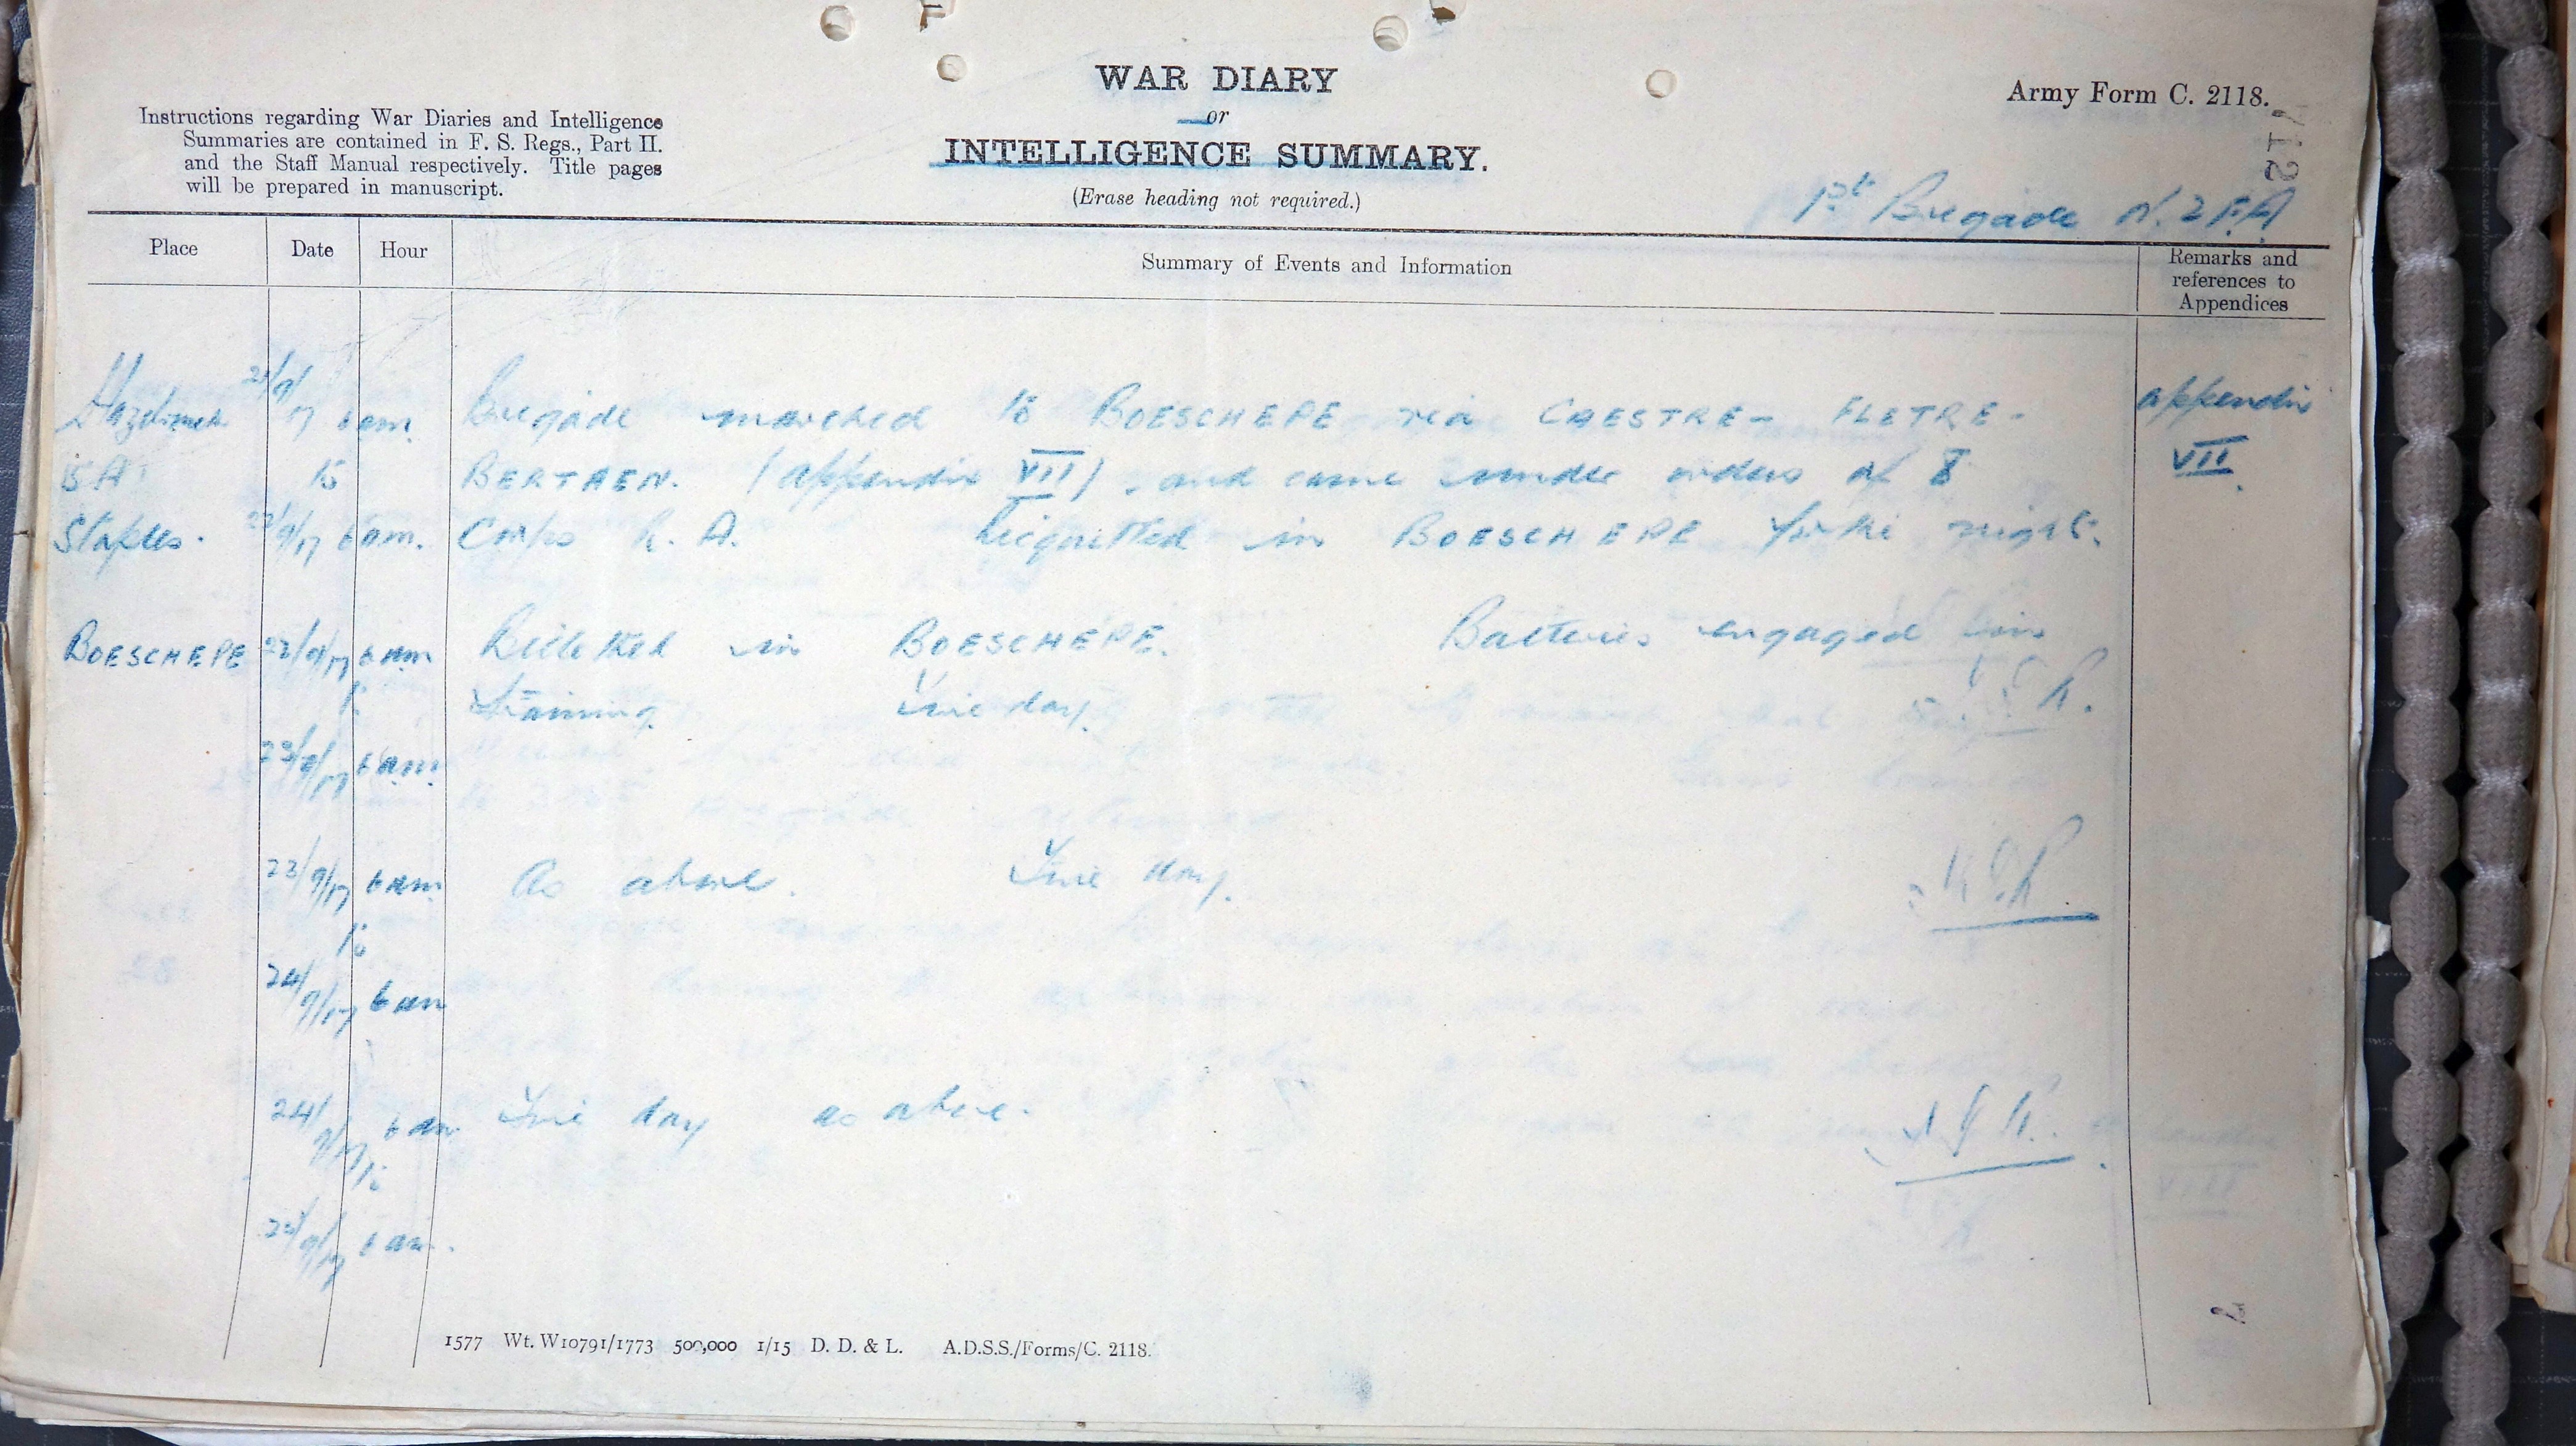 WAR DIARY
or
INTELLIGENCE SUMMARY.
(Erase heading not required.)
Army Form C. 2118.
Instructions regarding War Diaries and Intelligence
Summaries are contained in F. S. Regs., Part II.
and the Staff Manual respectively. Title pages
will be prepared in manuscript.
1st Brigade N.Z.F.A
Place Date Hour Summary of Events and Information Remarks and
references to
Appendices
21/9/17 6 am. Brigade marched to BOESCHEPE via CAESTRE - FLETRE - appendix
to BERTHEN. (appendix VII), and came under orders of VII.
Staples. 22/9/17 6 am. Corps R. A. in BOESCHEPE for the night.
BOESCHEPE 22/9/17 6 am Billetted in BOESCHEPE. Batteries engaged in
to training. Fine day.
23/9/17 6 am.
23/9/17 6 am As above. Fine day.
to
24/9/17 6 am
24/9/17 6 am Fine day as above.
to
25/9/17 6 am.
1577 Wt. W10791/1773 500,000 1/15 D. D. & L. A.D.S.S./Forms/C. 2118.